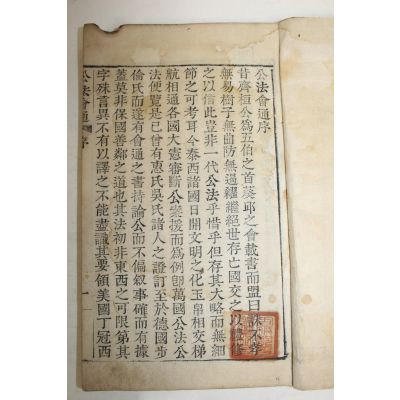 公法會通序
昔齊桓公爲五伯之首葵邱之會載書而盟曰誅不孝
無易樹子無曲防無遏糴繼絕世存亡國交之以
之以信此豈非一代公法乎惜乎但存其大略而無細
節之可考耳今泰西諸國日開文明之化玉帛相交梯
航相通各國大憲審斷公案援而爲例卽萬國公法公
法便覽是已曾有惠氏吳氏諸人之證訂至於德國步
倫氏而遂有會通之書持論公而不偏叙事確而有據
蓋莫非保國善鄰之道也其法初非東西之可限第其
字殊言異不有以譯之不能盡識其要領美國丁冠西
公法會通 序 一